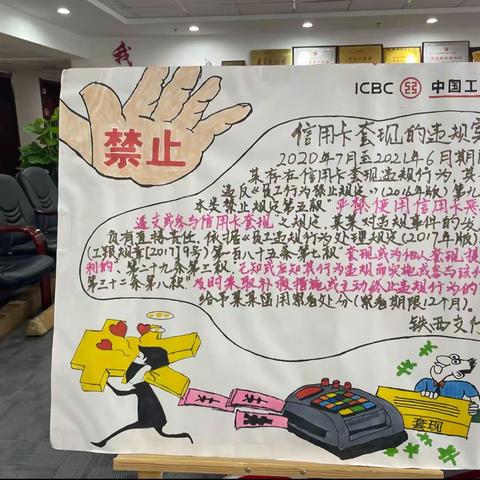 我
ICBC 中国工
禁止
信用卡套现的违规案
2020年7月至2021年6月期间
某存在信用卡套现违规行为,其
违反《员工行为禁止规定》(2016年版)第九
本类禁止规定第五款"严禁使用信用卡恶
透支或参与信用卡套现"之规定,某某对违规事件的发
负有直接责任。依据《员工违规行为处理规定(2017年版)
(工银规章[2017]9号)第一百八十五条第六款"套现或为他人套现提
利的"、第二十九条第三款"已知或应知其行为违规而实施或参与该
第三十二条第八款"及时采取补救措施或主动终止违规行为的
给予某某留用察看处分(察看期限12个月)。
铁西支行
套现